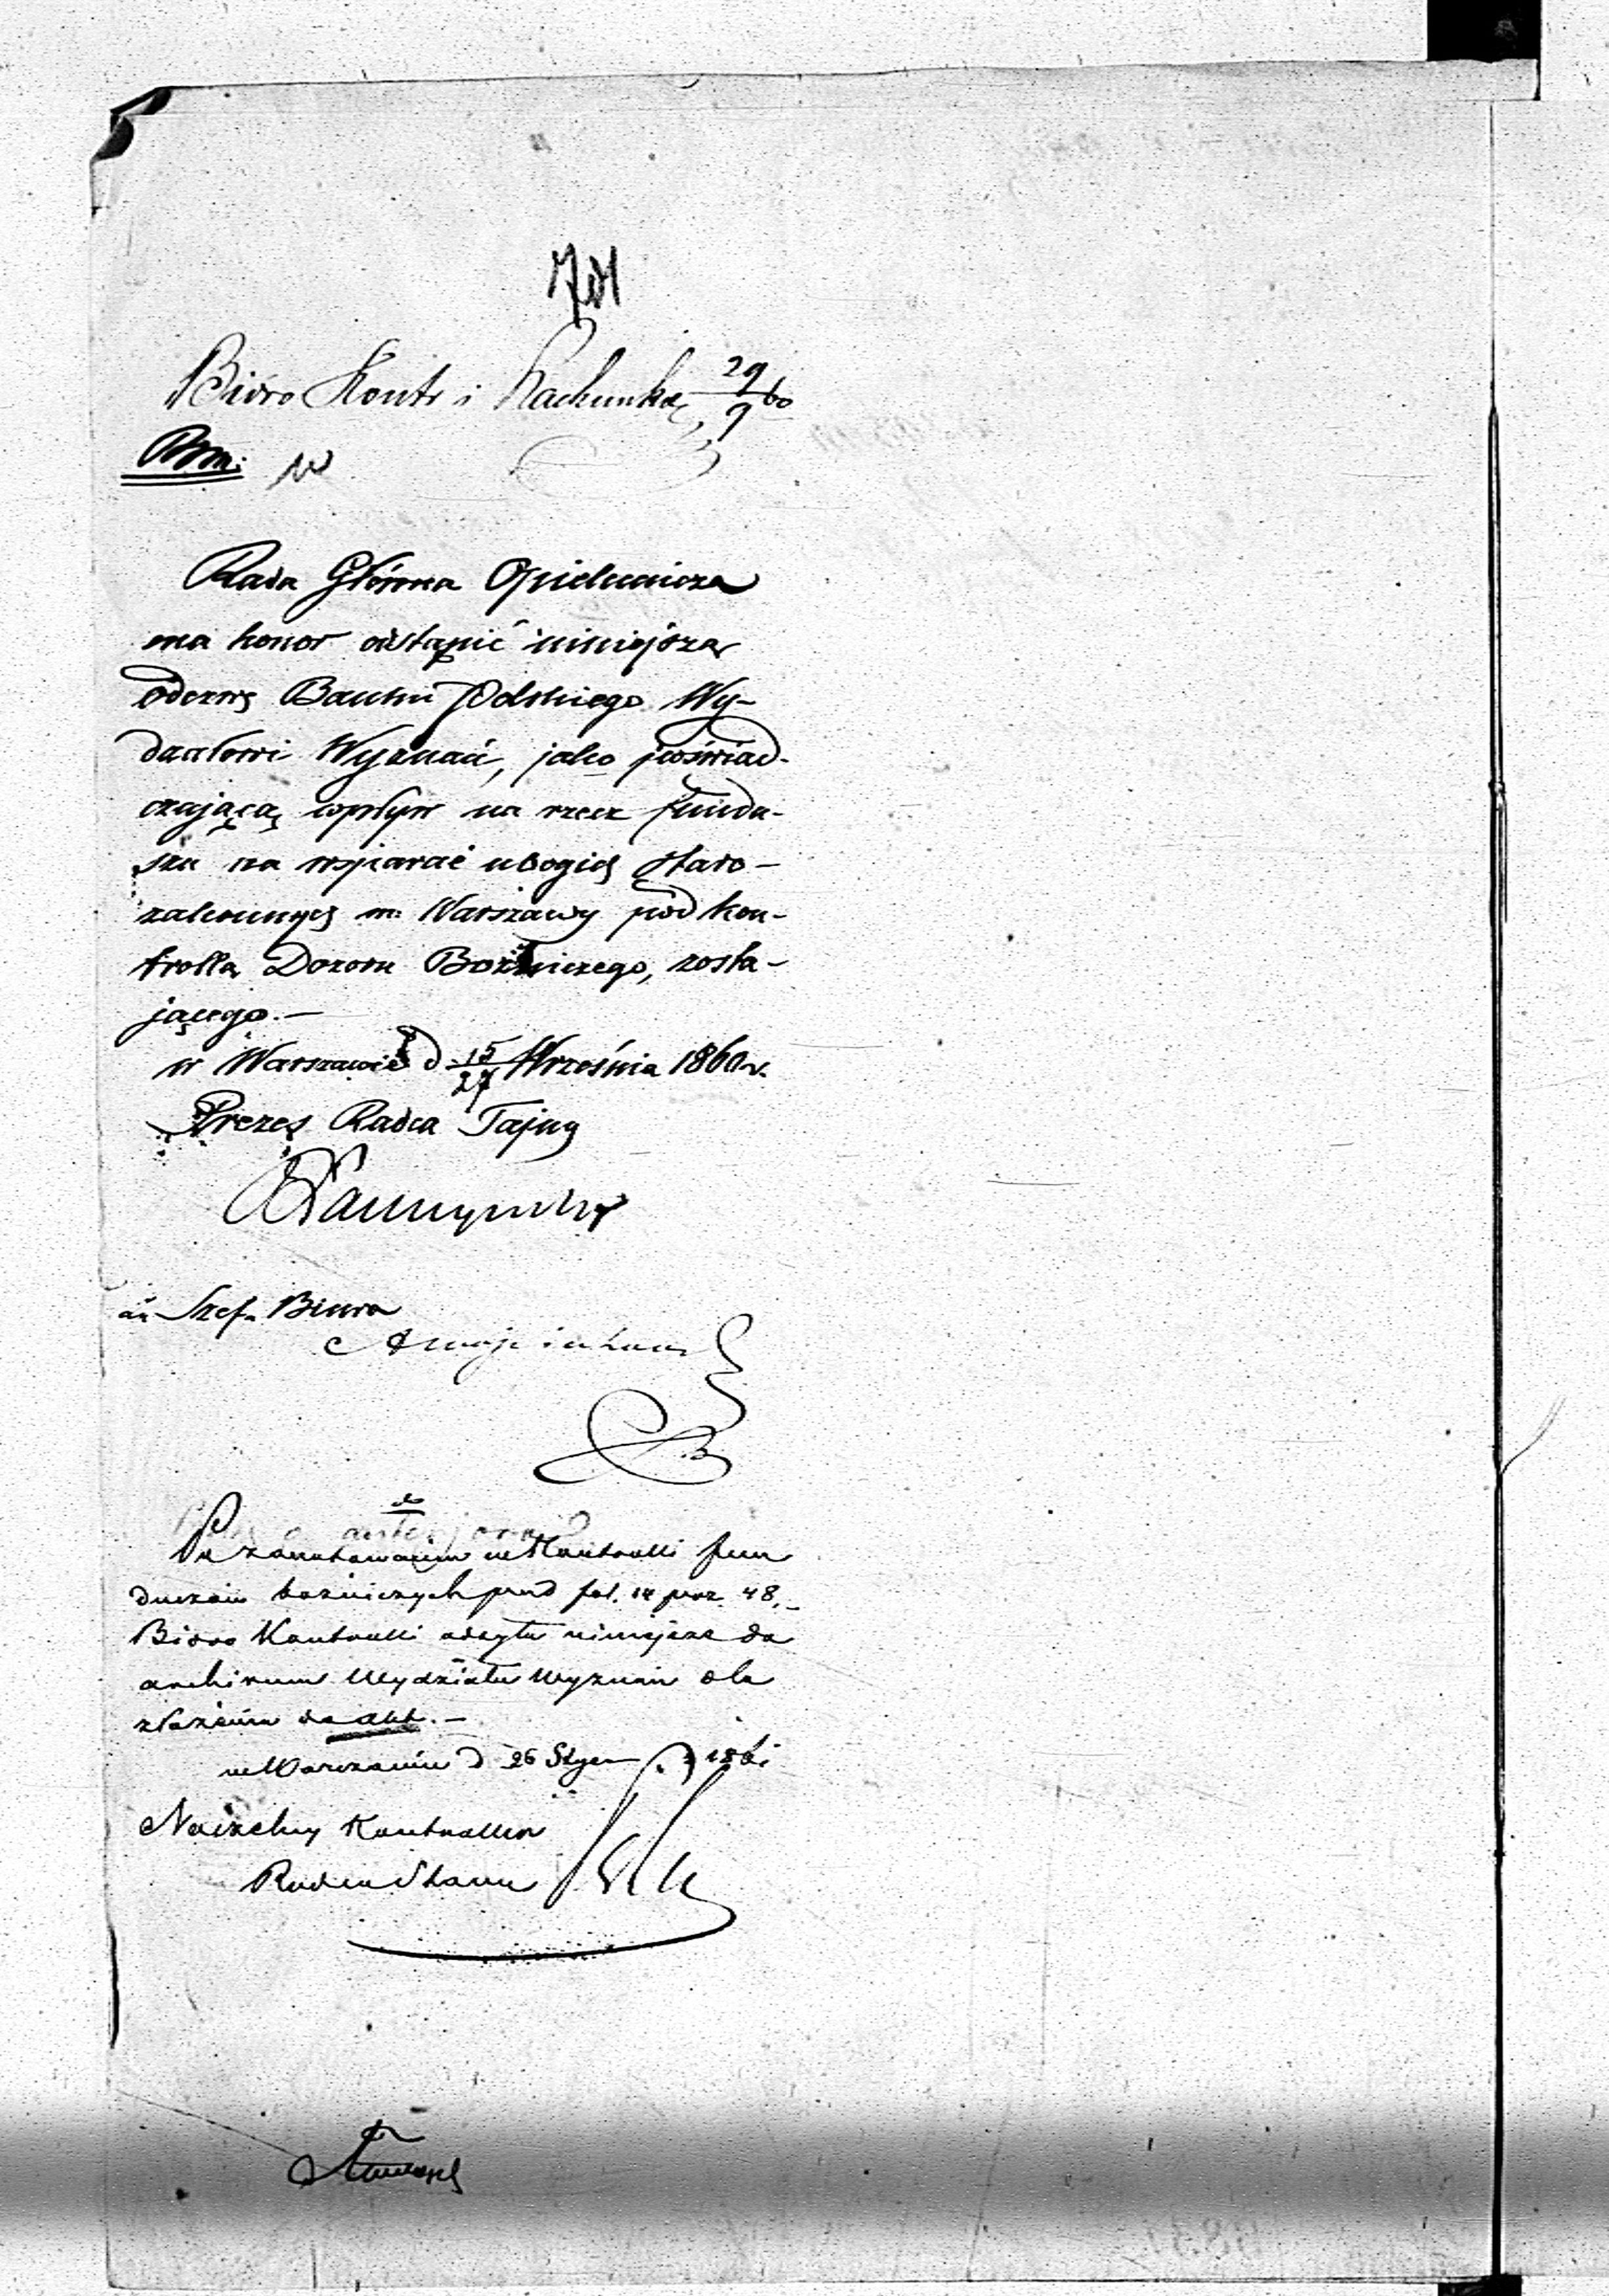 Biuro Kontr i Rachunko 29/9 60
Rada Główna Opiekuńcza
ma honor odstąpić niniejszą
odezwę Banku Polskiego Wy-
działowi Wyznań, jako poświad-
czającą wpływ na rzecz fundu-
szu na wsparcie ubogich staro-
zakonnych m: Warszawy pod kon-
trollą Dozoru Bożniczego, zosta-
jącego.—
w Warszawie d 15/27 Września 1860 r.
Prezes Radca Tajny
Szefa Biura
Po zanotowaniu w Kontrolli fun
duszów bożniczych pod fol. 14 poz. 48.—
Biuro Kontrolli odsyła niniejsze do
archiwum Wydziału Wyznań dla
złożenia do akt.—
w Warszawie d 26 Stycz 1861
Naczelny Kontroller
Radca Stanu